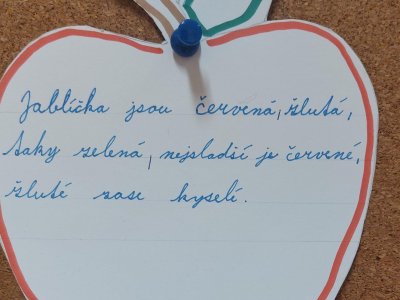 Jablíčka jsou červená, žlutá,
taky zelená, nejsladší je červené,
žluté zase kyselé.